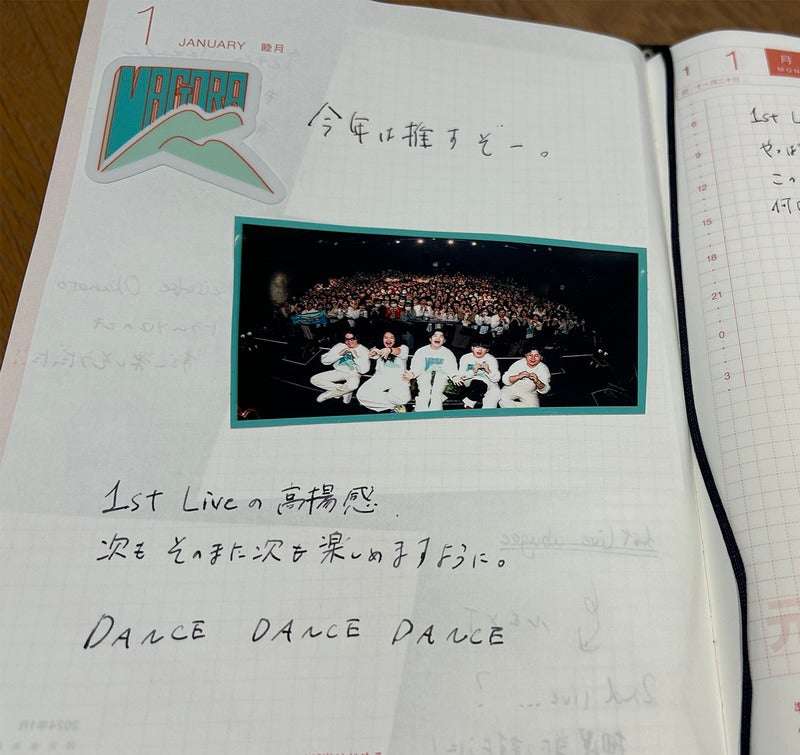 1 JANUARY 睦月
MAGORA
今年は推すぞー。
1st Liveの高揚感.
次も そのまた次も 楽しめますように。
DANCE DANCE DANCE
1 1 月
MON
8
9
12
15
18
21
0
3
1st L
やっぱ
この
何
元